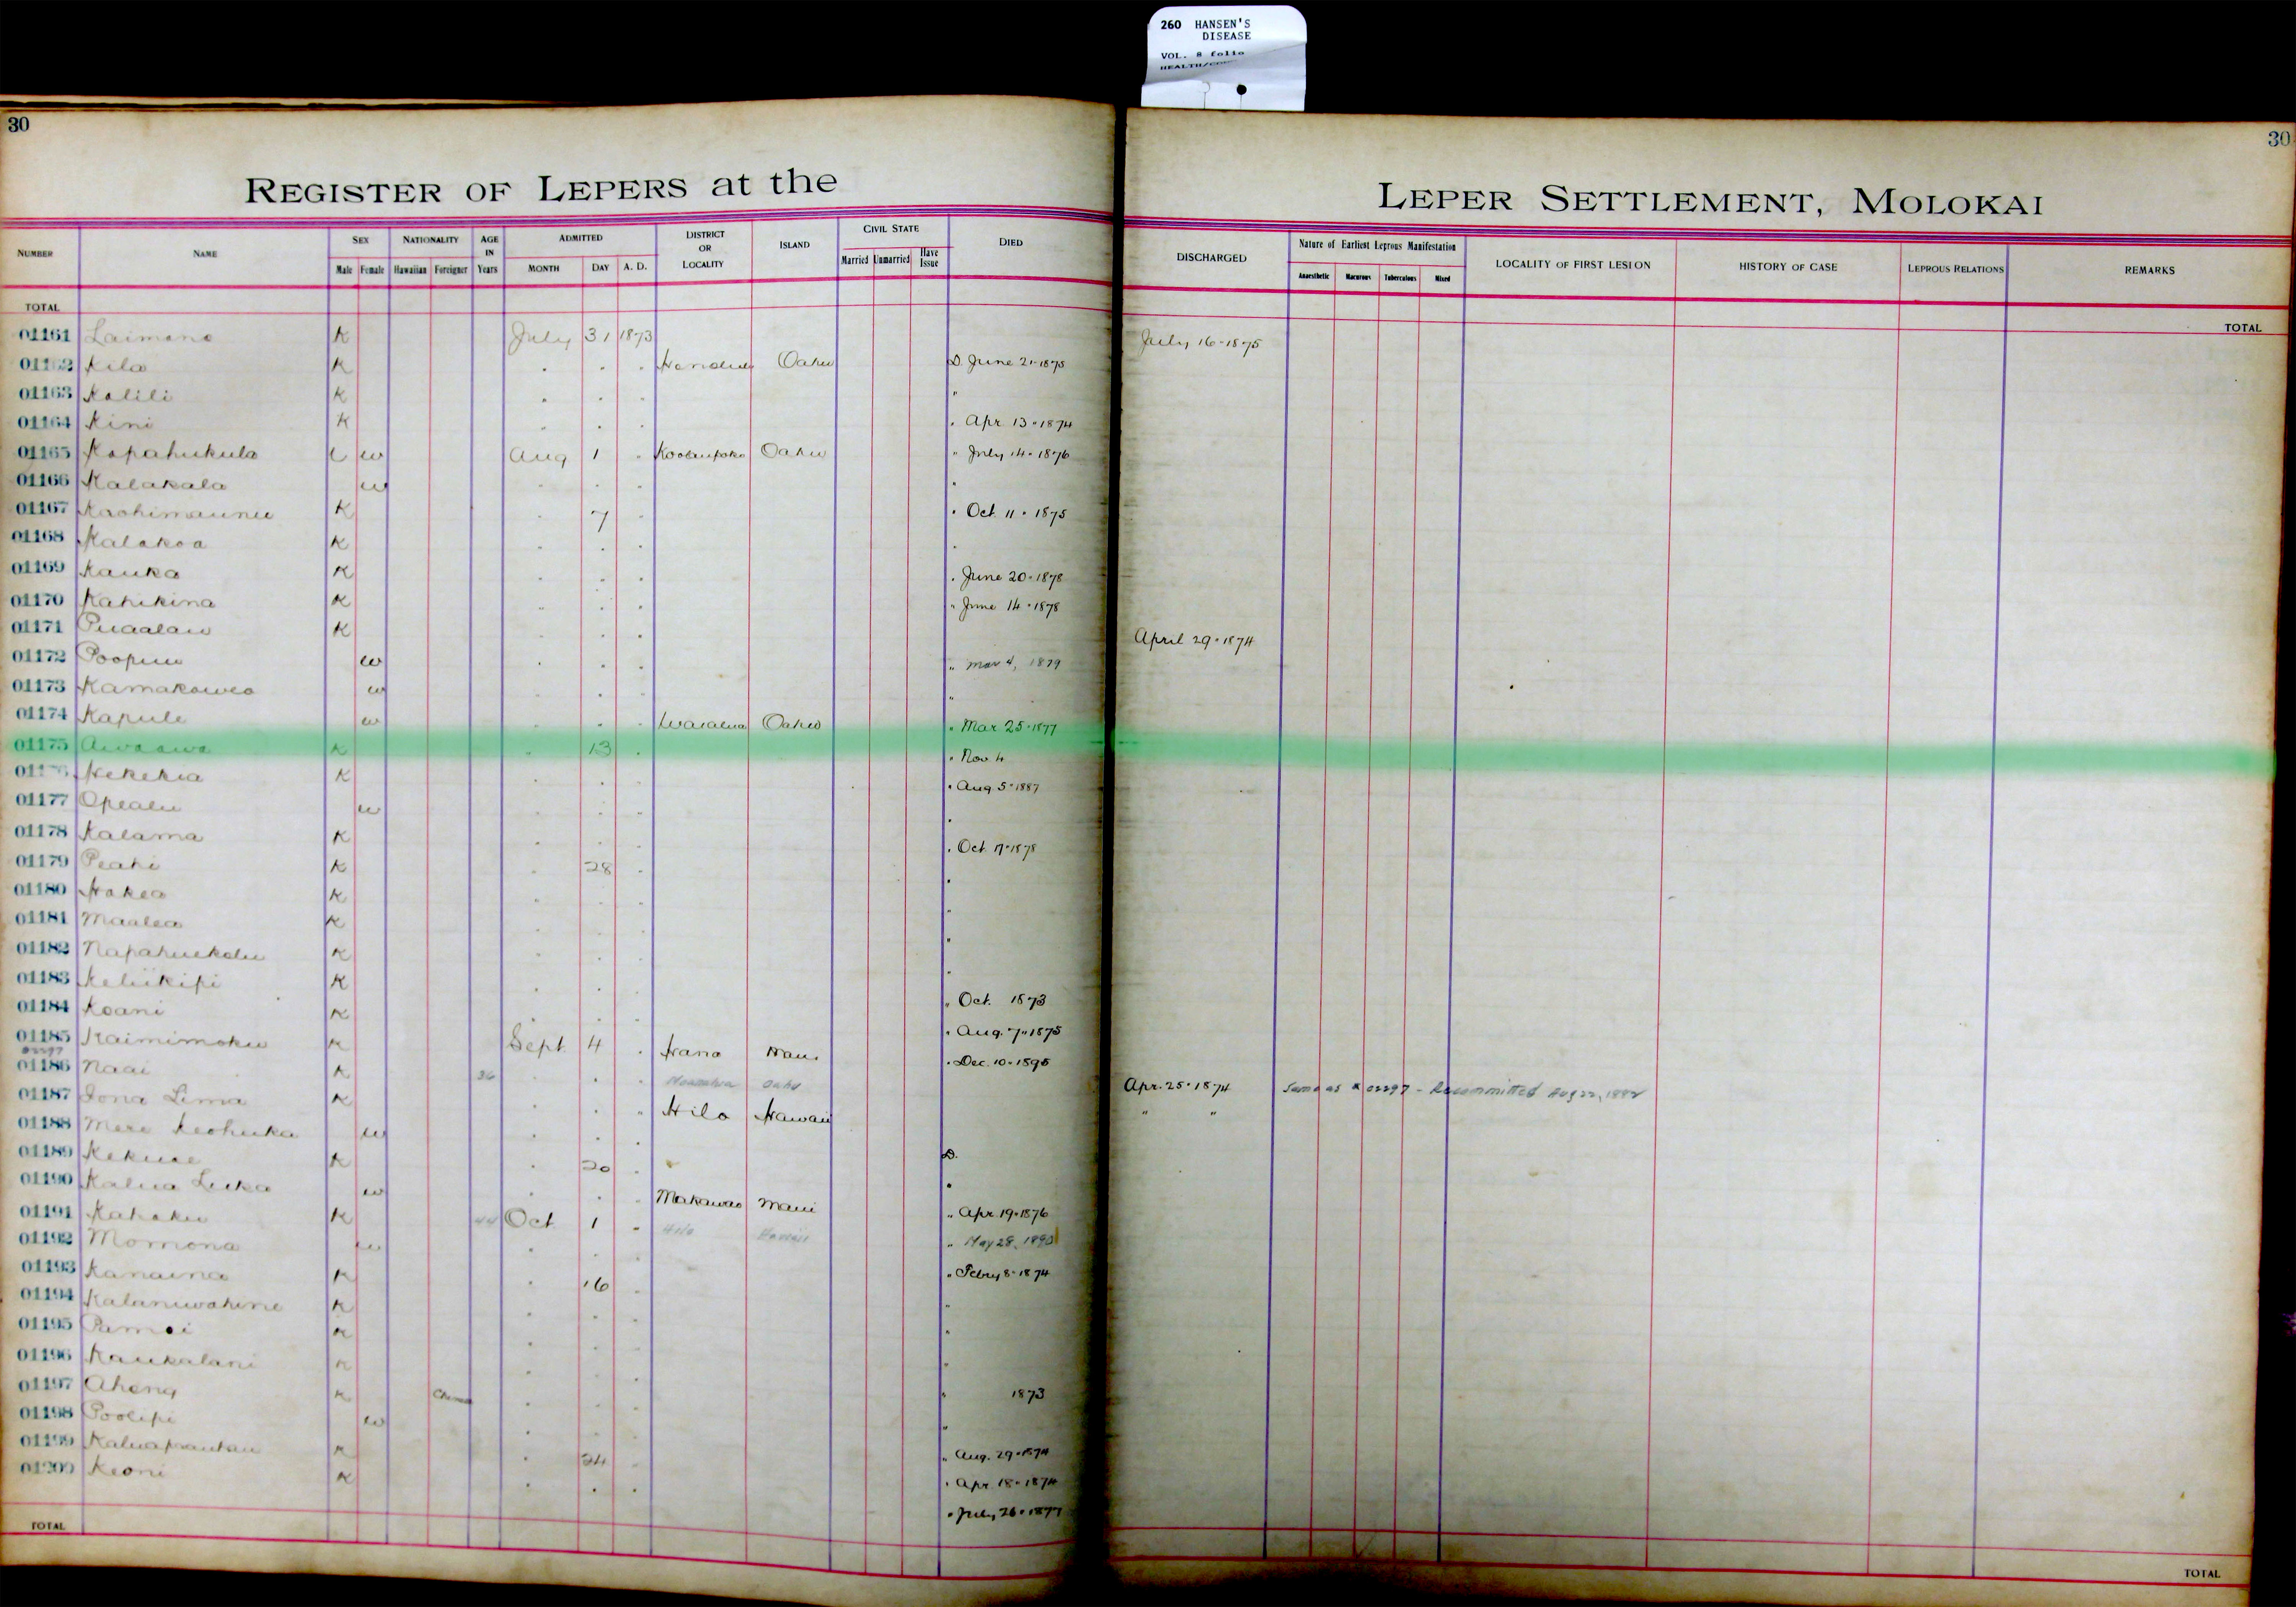 260 HANSEN'S
DISEASE
VOL. 8 folio
30
30
REGISTER OF LEPERS at the
LEPER SETTLEMENT, MOLOKAI
NUMBER NAME SEX Male Female NATIONALITY Hawaiian Foreigner AGE IN Years ADMITTED MONTH DAY A. D. DISTRICT OR LOCALITY ISLAND CIVIL STATE Married Unmarried Have Issue DIED DISCHARGED Nature of Earliest Leprous Manifestation Anaesthetic Tuberculous Mixed LOCALITY OF FIRST LESION HISTORY OF CASE LEPROUS RELATIONS REMARKS
TOTAL TOTAL
01161 Laimana K July 31 1873 July 16-1875
Kila K " " " Honolulu Oahu D. June 21-1875
01163 Kalili K " " " "
01164 Kini K " " " " Apr. 13-1874
01165 Kapahukula w Aug 1 " Koolaupoko Oahu " July 14-1876
01166 Kalakala w " " " "
01167 K " 7 " " Oct. 11-1875
01168 Kalakoa K " " " "
01169 Kauka K " " " " June 20-1878
01170 Kahikina K " " " " June 14-1878
01171 Puaalau K " " " April 29-1874
01172 w " " " " Mar 4, 1879
01173 Kamakawea w " " " "
01174 Kapule w " " " Waialua Oahu " Mar 25-1877
01175 Awaawa K " 13 " " Nov. 4
Kekekia K " " " " Aug 5-1887
01177 Opealu w " " " "
01178 Kalama K " " " " Oct. 17-1878
01179 Peahi K " 28 " "
01180 Hakea K " " " "
01181 Maalea K " " " "
01182 Napahuekolu K " " " "
01183 Keliikipi K " " " " Oct. 1873
01184 Koani K " " " " Aug. 7-1875
01185 Kaimimoku K Sept. 4 " Hana Maui " Dec. 10-1895
01186 Naai K 36 " " Oahu Apr. 25-1874 Same as # 02297 - Recommitted Aug 22, 1882
01187 Iona Lima K " " " Hilo Hawaii " "
01188 Mere Keohuka w " " " D.
01189 Kekuae K " 20 " "
01190 Kalua Luka w " " " Makawao Maui " Apr. 19-1876
01191 Kahaku K 44 Oct 1 " Hilo Hawaii " May 28, 1890
01192 Momona w " " " Febry 8-1874
01193 Kanaina K " 16 " "
01194 Kalaniwahine K " " " "
01195 K " " " "
01196 Kaukalani K " " " " 1873
01197 Aheng K China " " " "
01198 Poolipi w " " " " Aug. 29-1874
01199 K " 24 " " Apr. 18-1874
01200 Keoni K " " " " July 26-1877
TOTAL TOTAL